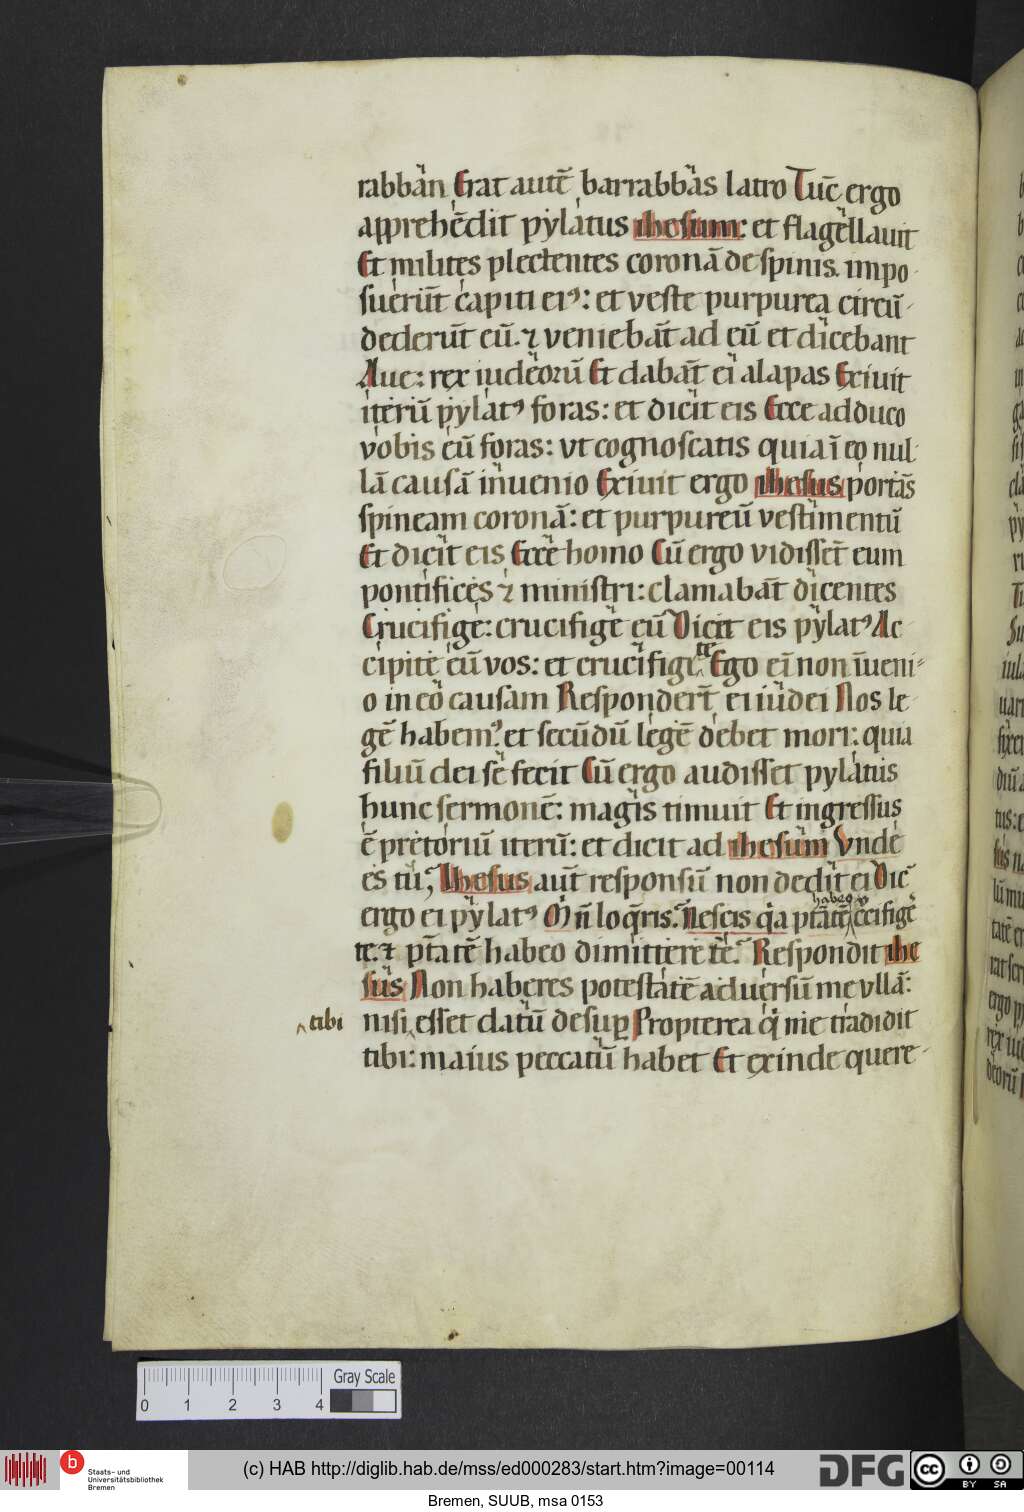 rabban Erat autē barrabbas latro Tūc ergo
apprehēdit pylatus ihesum: et flagellauit
Et milites plectentes coronā de spinis. impo
suerūt capiti eiꝰ: et veste purpurea circū-
dederūt eū. ⁊ veniebāt ad eū et dicebant
Aue: rex iudeorū Et dabāt ei alapas Exiuit
iterū pylatꝰ foras: et dicit eis Ecce adduco
vobis eū foras: vt cognoscatis quia ī eo nul-
lā causā inuenio Exiuit ergo ihesus portās
spineam coronā: et purpureū vestimentū
Et dicit eis Ecce homo Cū ergo vidissēt eum
pontifices ⁊ ministri: clamabāt dicentes
Crucifige: crucifige eū Dicit eis pylatꝰ Ac
te
cipite eū vos: et crucifigi Ego eī non īueni⸗
o in eo causam Respondert̄ ei iudei Nos le-
gē habemꝰ. et secūdū legē debet mori: quia
filiū dei se fecit Cū ergo audisset pylatus
hunc sermonē: magis timuit Et ingressus
ē pretoriū iterū: et dicit ad ihesum Vnde
es tu; Ihesus aūt responsū non dedit ei Dic̄
habeo
ergo ei pylatꝰ M n̄ loq̄ris. Nescis q̇a ptātē ccifige
te. ⁊ pt̄atē habeo dimittere te. Respondit ihe
sus Non haberes potestatē aduersū me vllā:
tibi nisi esset datū desuꝑ Propterea q̇ me tradidit
tibi: maius peccatū habet Et exinde quere-
0 1 2 3 4 Gray Scale
b Staats- und Universitätsbibliothek Bremen
(c) HAB http://diglib.hab.de/mss/ed000283/start.htm?image=00114
DFG cc BY SA
Bremen, SUUB, msa 0153